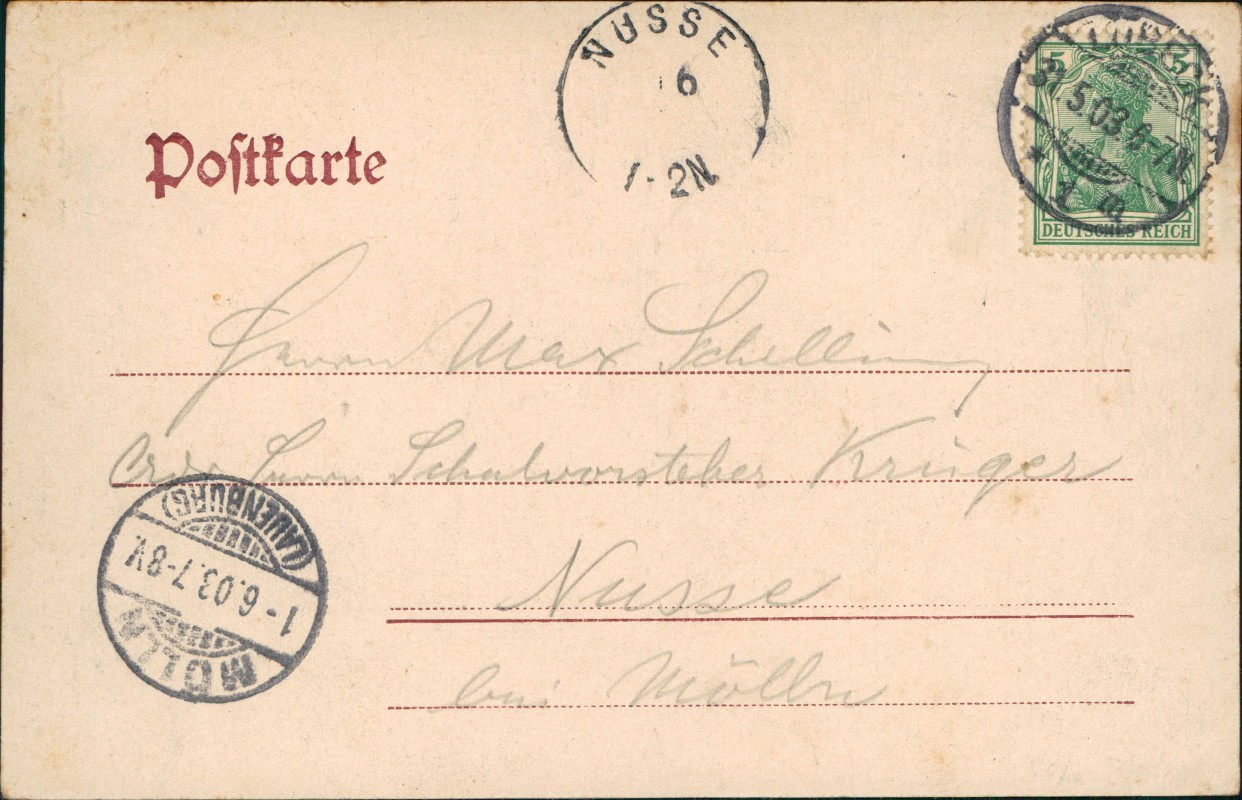 NUSSE
6
1-2N
LÜBECK
31.5.03.6-7N.
* 1 m
5 5
DEUTSCHES REICH
Postkarte
Herrn Max Schelling
Adr. Herrn Schulvorsteher Krüger
Nusse
bei Mölln
MÖLLN
1-6.03.7-8V.
(LAUENBURG)